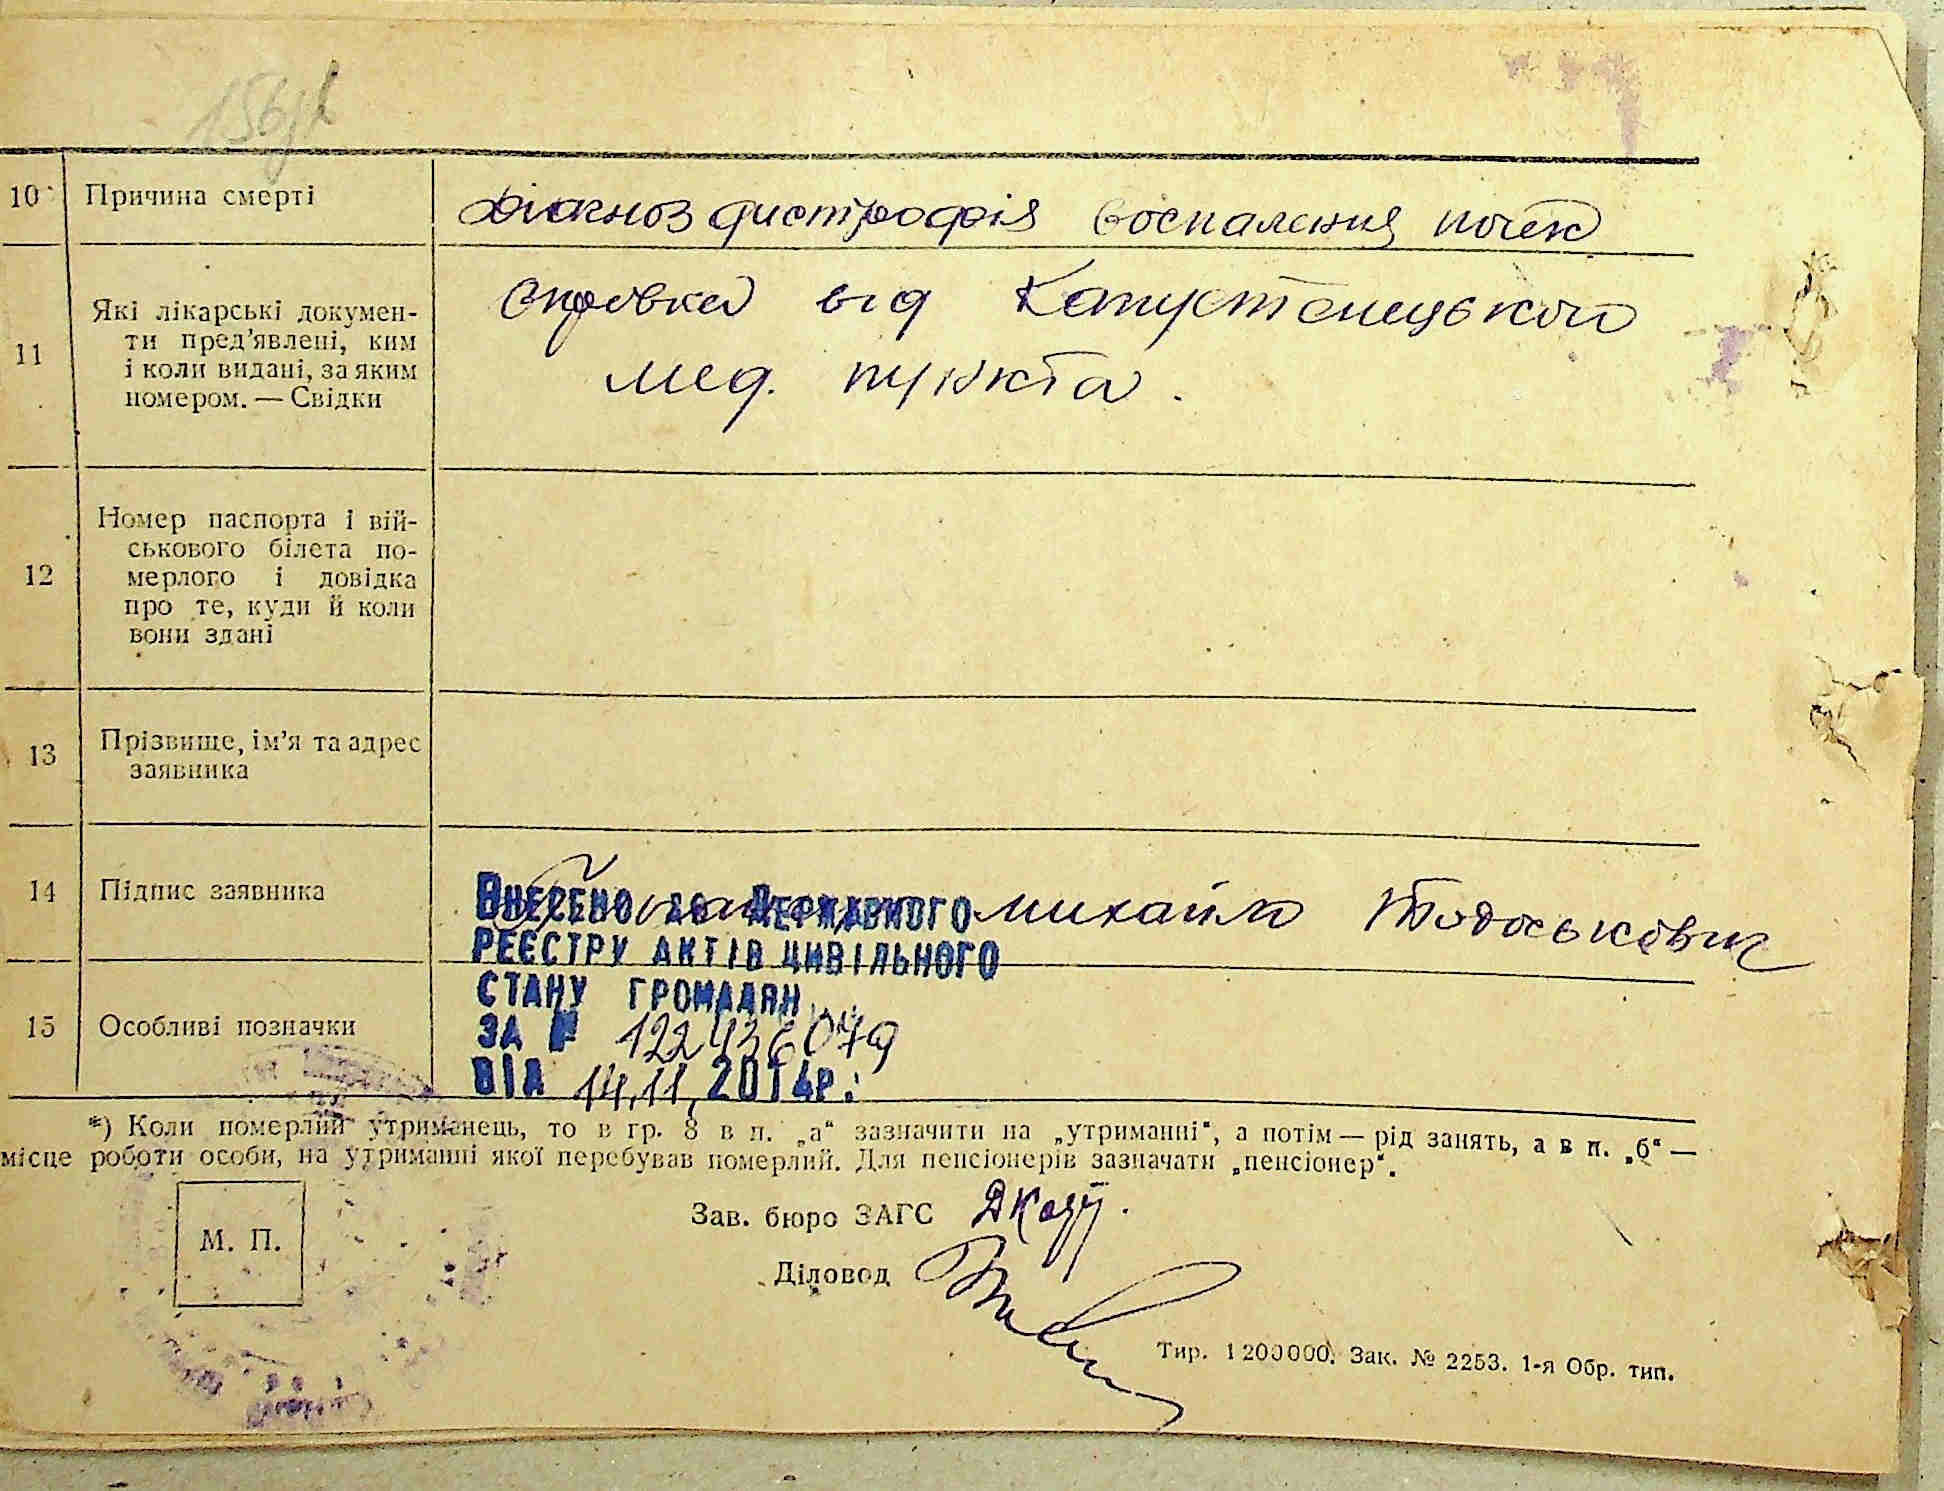 10 Причина смерті діагноз дистрофія воспаления почек
11 Які лікарські докумен-
ти пред'явлені, ким
і коли видані, за яким
номером. — Свідки
справка від Капустенецького
мед. пункта.
12 Номер паспорта і вій-
ськового білета по-
мерлого і довідка
про те, куди й коли
вони здані
13 Прізвище, ім'я та адрес
заявника
14 Підпис заявника Михайло Тодоськович
ВНЕСЕНО ДО ДЕРЖАВНОГО
РЕЄСТРУ АКТІВ ЦИВІЛЬНОГО
СТАНУ ГРОМАДЯН
15 Особливі позначки
ЗА №
ВІД 14.11.2014р.
*) Коли померлий утриманець, то в гр. 8 в п. „а“ зазначити на „утриманні“, а потім — рід занять, а в п. „б“ —
місце роботи особи, на утриманні якої перебував померлий. Для пенсіонерів зазначати „пенсіонер“.
М. П.
Зав. бюро ЗАГС
Діловод
Тир. 1200000. Зак. № 2253. 1-я Обр. тип.